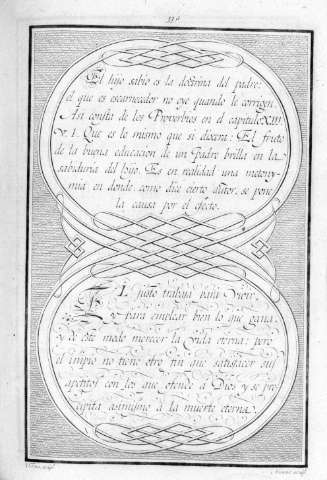 El hijo sabio es la doctrina del padre:
el que es escarnecedor no oye quando le corrigen.
Asi consta de los Proverbios en el capitulo XIII.
V. I. Que es lo mismo que si dixera: El fruto
de la buena educacion de un Padre brilla en la
sabiduria del hijo. Es en realidad una metony-
mia en donde, como dice cierto autor, se pone
la causa por el efecto.
EL justo trabaja para vivir,
y para emplear bien lo que gana,
y de este modo merecer la vida eterna: pero
el impio no tiene otro fin que satisfacer sus
apetitos con los que ofende á Dios y se pre-
cipita asimismo á la muerte eterna.